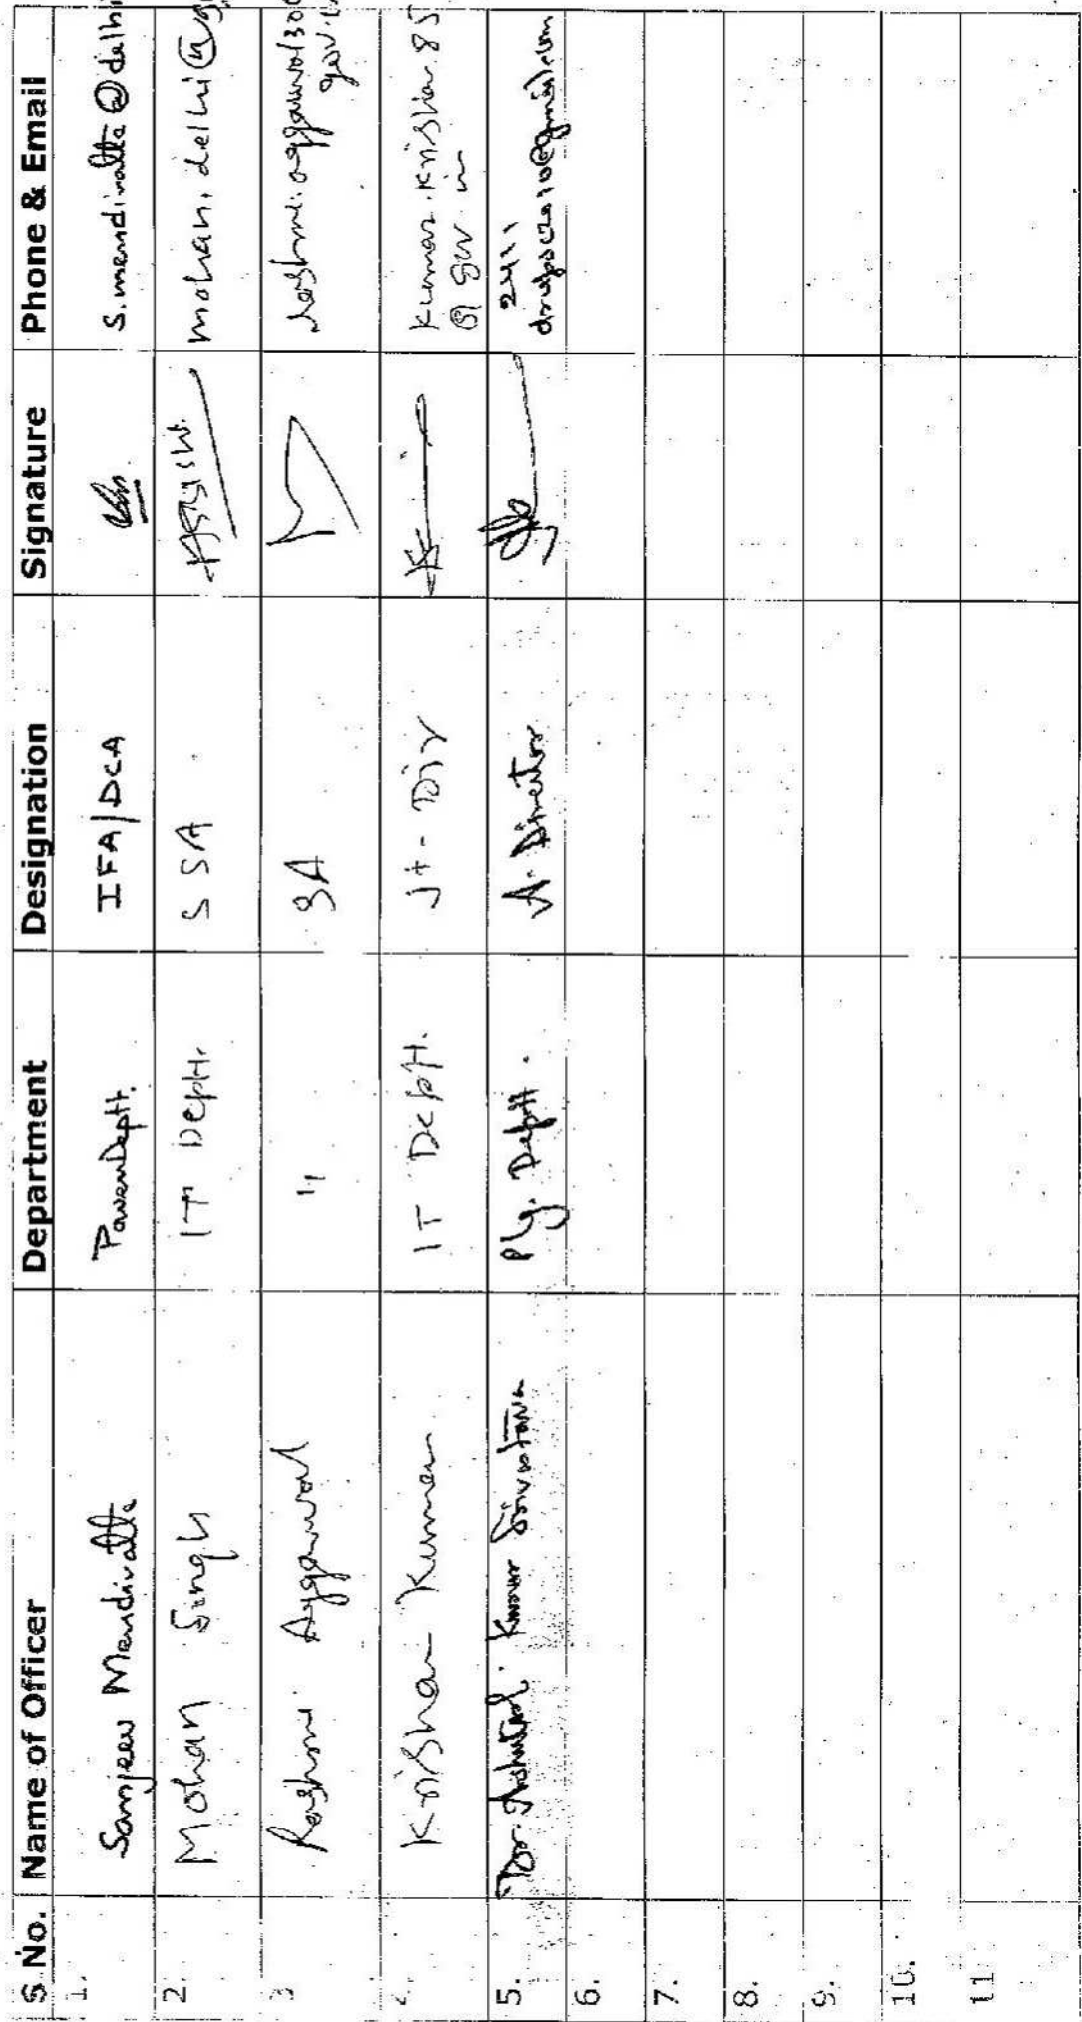 S.No. Name of Officer Department Designation Signature Phone & Email
1. Sanjeev Mendiratta Power Deptt. IFA/DCA s.mendiratta@delhi
2. Mohan Singh IT Deptt. SSA mohan.delhi@g
3 Rashmi Aggarwal " SA rashmi.aggarwal30
gov.i
4. Krishan Kumar IT Deptt. Jt-Dir Kumar.Krishan.85
@gov.in
5. Dr. Ashutosh Kumar Srivastava Plg. Deptt. A. Director 2411
6.
7.
8.
9.
10.
11